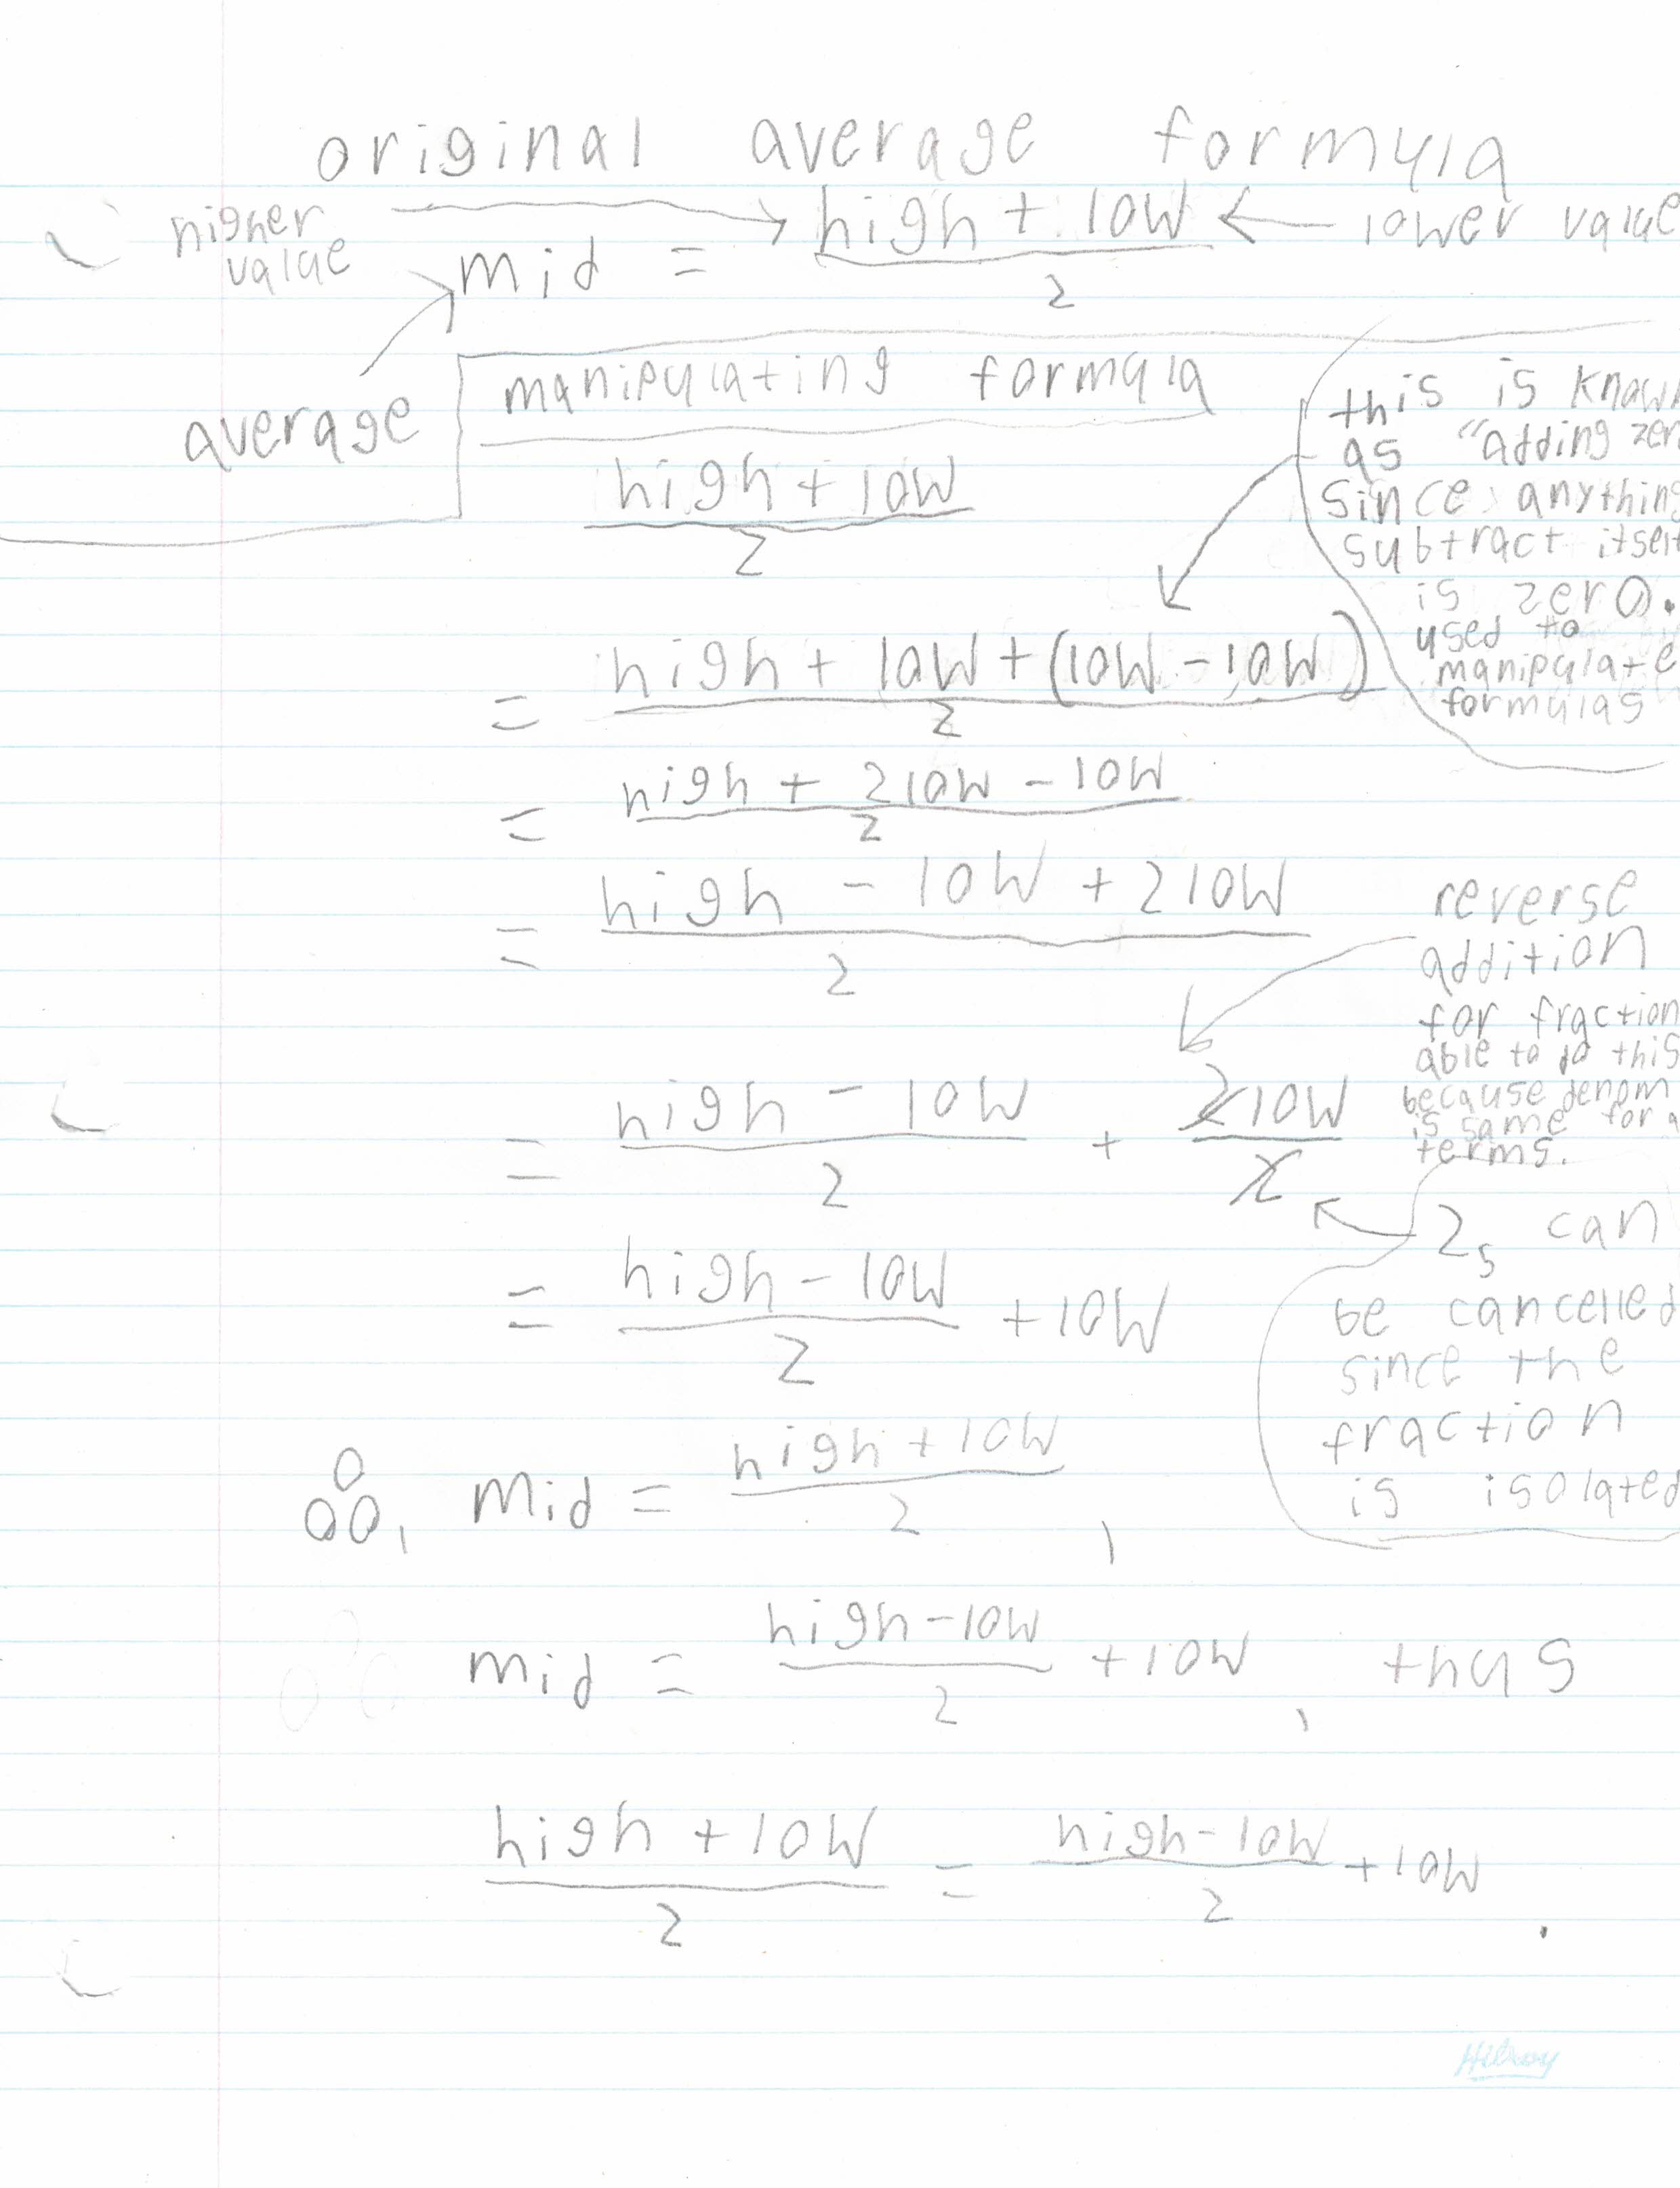 original average formula
higher value
mid = high + low / 2
lower value
average
manipulating formula
high + low / 2
this is known
as "adding zer
since anything
subtract itself
is zero.
used to
manipulate
formulas
= high + low + (low - low) / 2
= high + 2low - low / 2
= high - low + 2low / 2
reverse
addition
for fraction
able to do this
because denom
is same for a
terms.
= high - low / 2 + 2low / 2
2s can
be cancelled
since the
fraction
is isolated
= high - low / 2 + low
∴, mid = high + low / 2 ,
mid = high - low / 2 + low, thus
high + low / 2 = high - low / 2 + low .
Hilroy